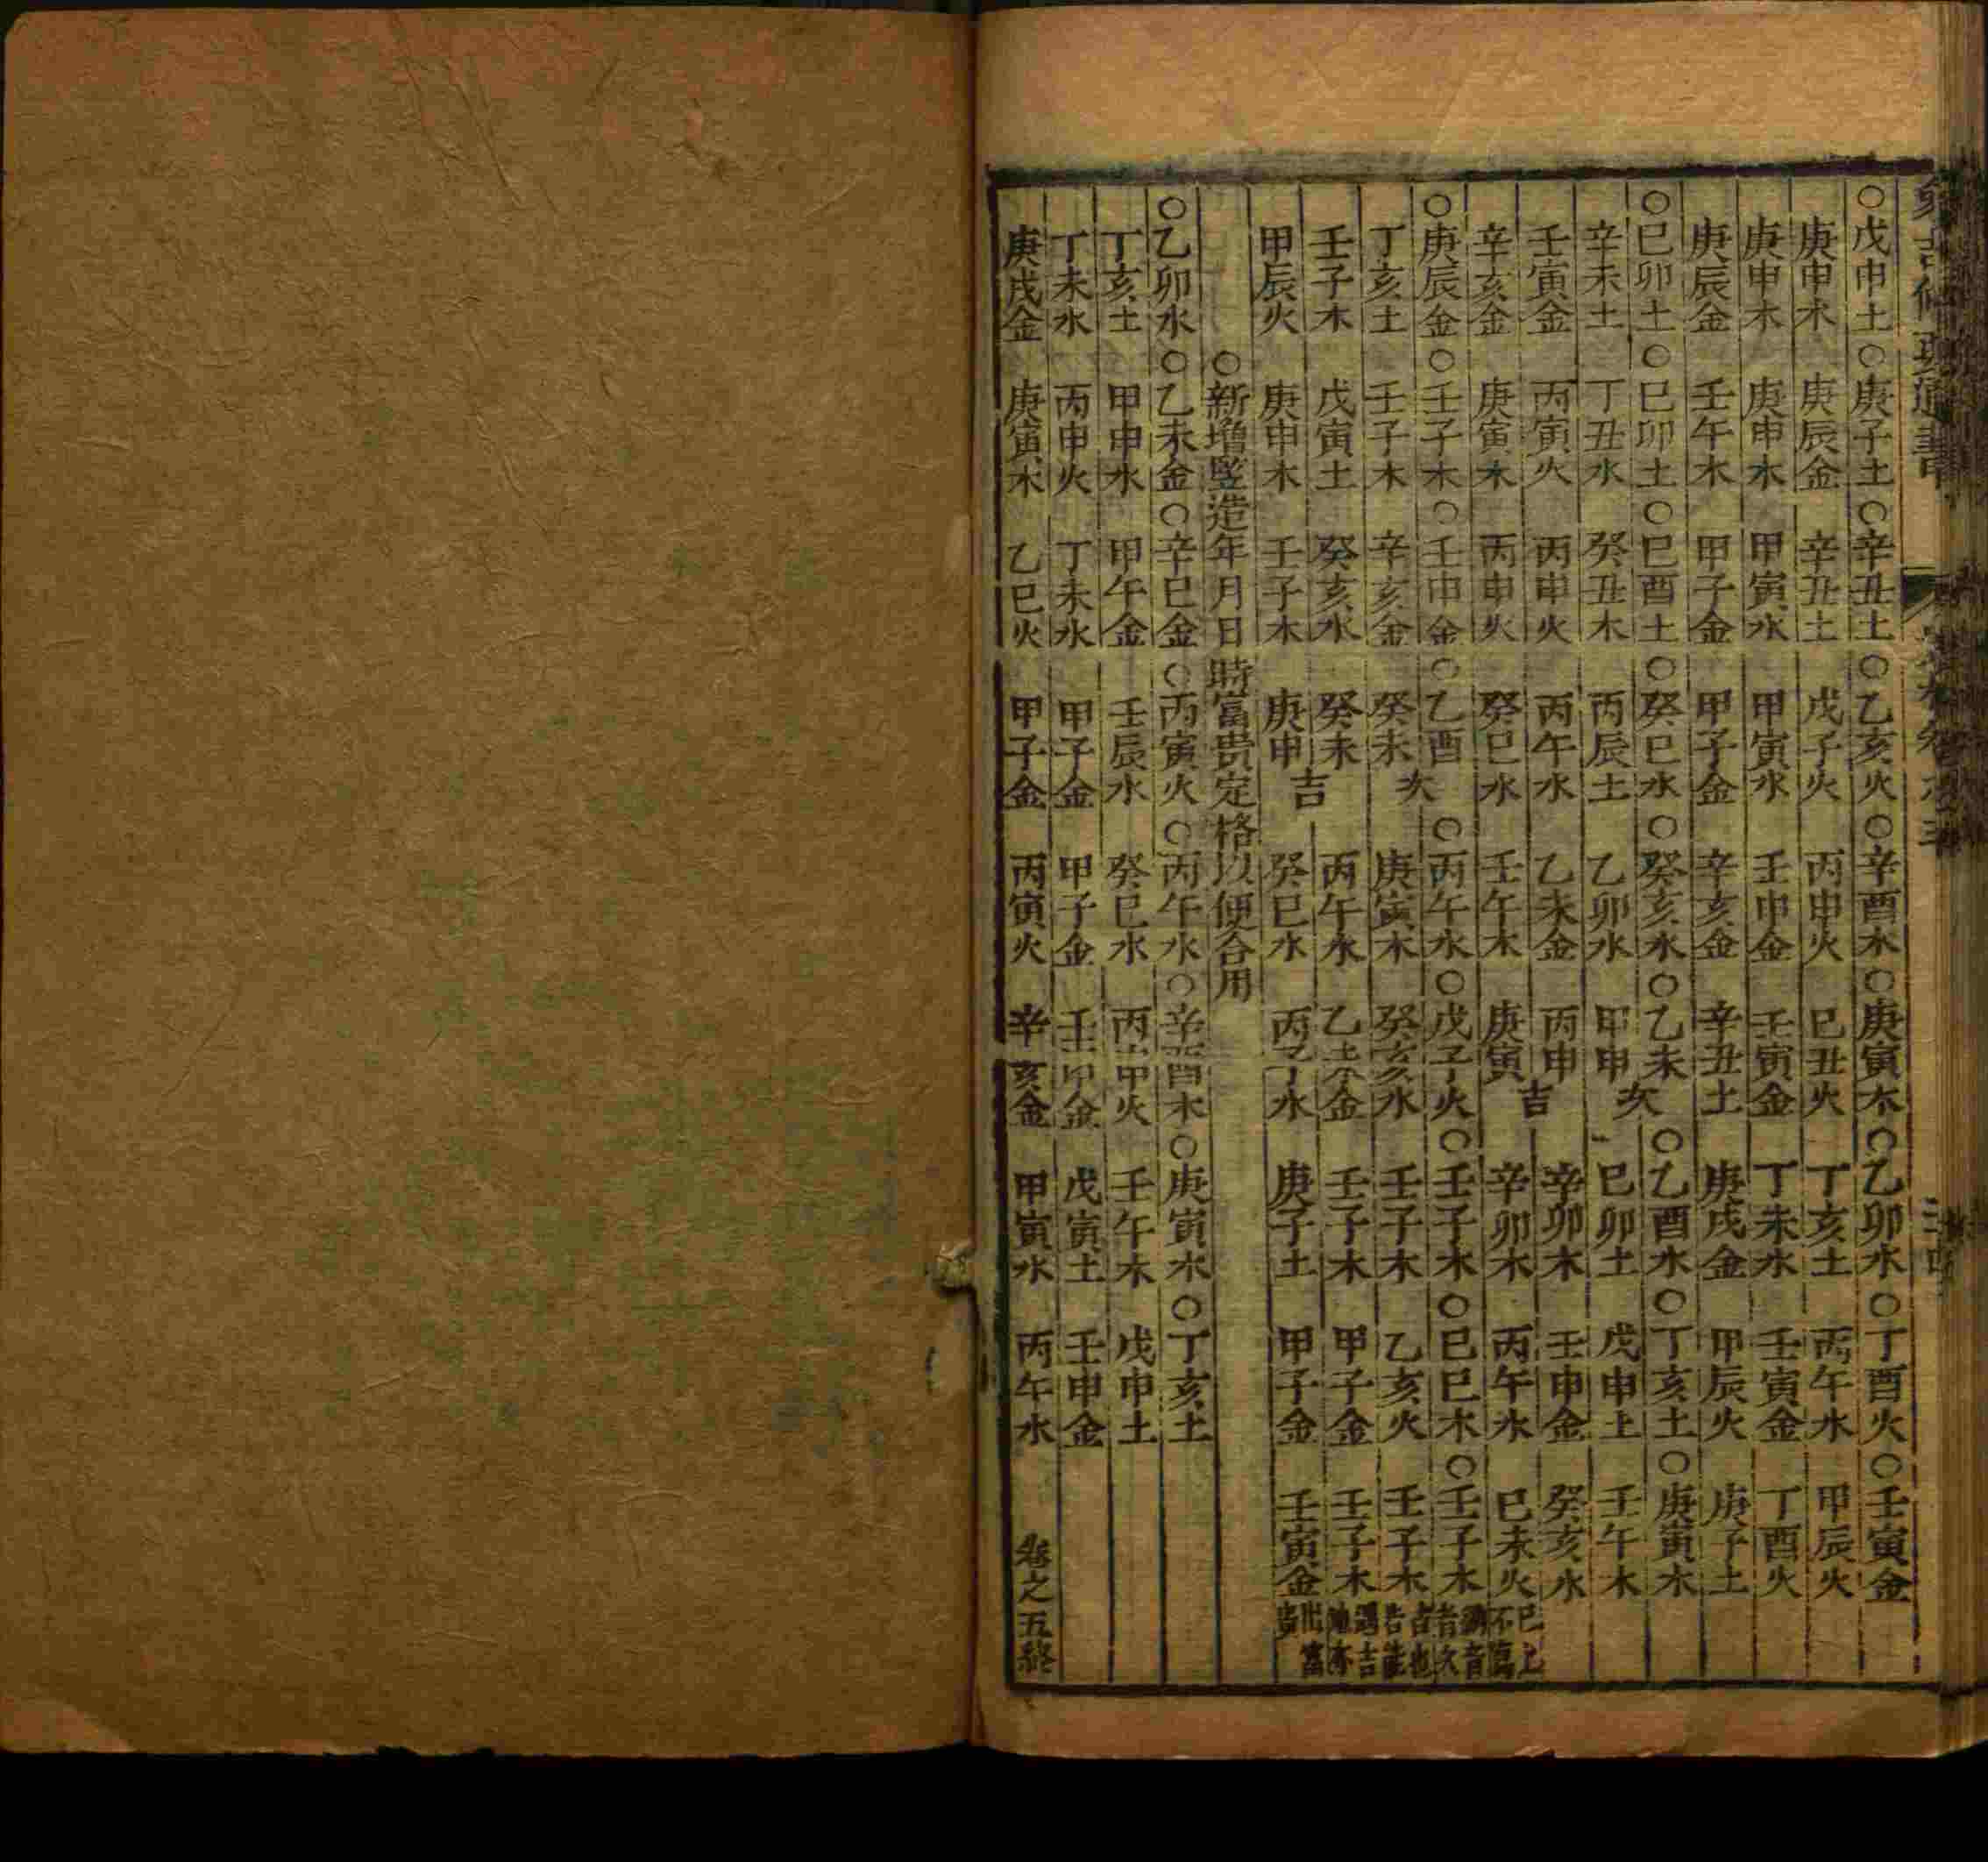 ○戊申土○庚子土○辛丑土○乙亥火○辛酉木○庚寅木○乙卯水○丁酉火○壬寅金
庚申木 庚辰金 辛丑土 戊子火 丙申火 巳丑火 丁亥土 丙午水 甲辰火
庚申木 庚申木 甲寅水 甲寅水 壬申金 壬寅金 丁未水 壬寅金 丁酉火
庚辰金 壬午木 甲子金 甲子金 辛亥金 辛丑土 庚戌金 甲辰火 庚子土
○巳卯土○巳卯土○巳酉土○癸巳水○癸亥水○乙未 ○乙酉水○丁亥土○庚寅木
次
辛未土 丁丑水 癸丑木 丙辰土 乙卯水 甲申 巳卯土 戊申土 壬午木
壬寅金 丙寅火 丙申火 丙午水 乙未金 丙申 辛卯木 壬申金 癸亥水
吉
辛亥金 庚寅木 丙申火 癸巳水 壬午木 庚寅 辛卯木 丙午水 巳未火
○庚辰金○壬子木○壬申金○乙酉 ○丙午水○戊子火○壬子木○巳巳木○壬子木
次
丁亥土 壬子木 辛亥金 癸未 庚寅木 癸亥水 壬子木 乙亥火 壬子木
壬子木 戊寅土 癸亥水 癸未 丙午水 乙未金 壬子木 甲子金 壬子木
吉
甲辰火 庚申木 壬子木 庚申 癸巳水 丙子水 庚子土 甲子金 壬寅金
已上不寫納音者次吉也若能遇吉地亦出富貴
○新增竪造年月日時富貴定格以便合用
○乙卯水○乙未金○辛巳金○丙寅火○丙午水○辛酉木○庚寅木○丁亥土
丁亥土 甲申水 甲午金 壬辰水 癸巳水 丙申火 壬午木 戊申土
丁未水 丙申火 丁未水 甲子金 甲子金 壬申金 戊寅土 壬申金
庚戌金 庚寅木 乙巳火 甲子金 丙寅火 辛亥金 甲寅水 丙午水
卷之五終